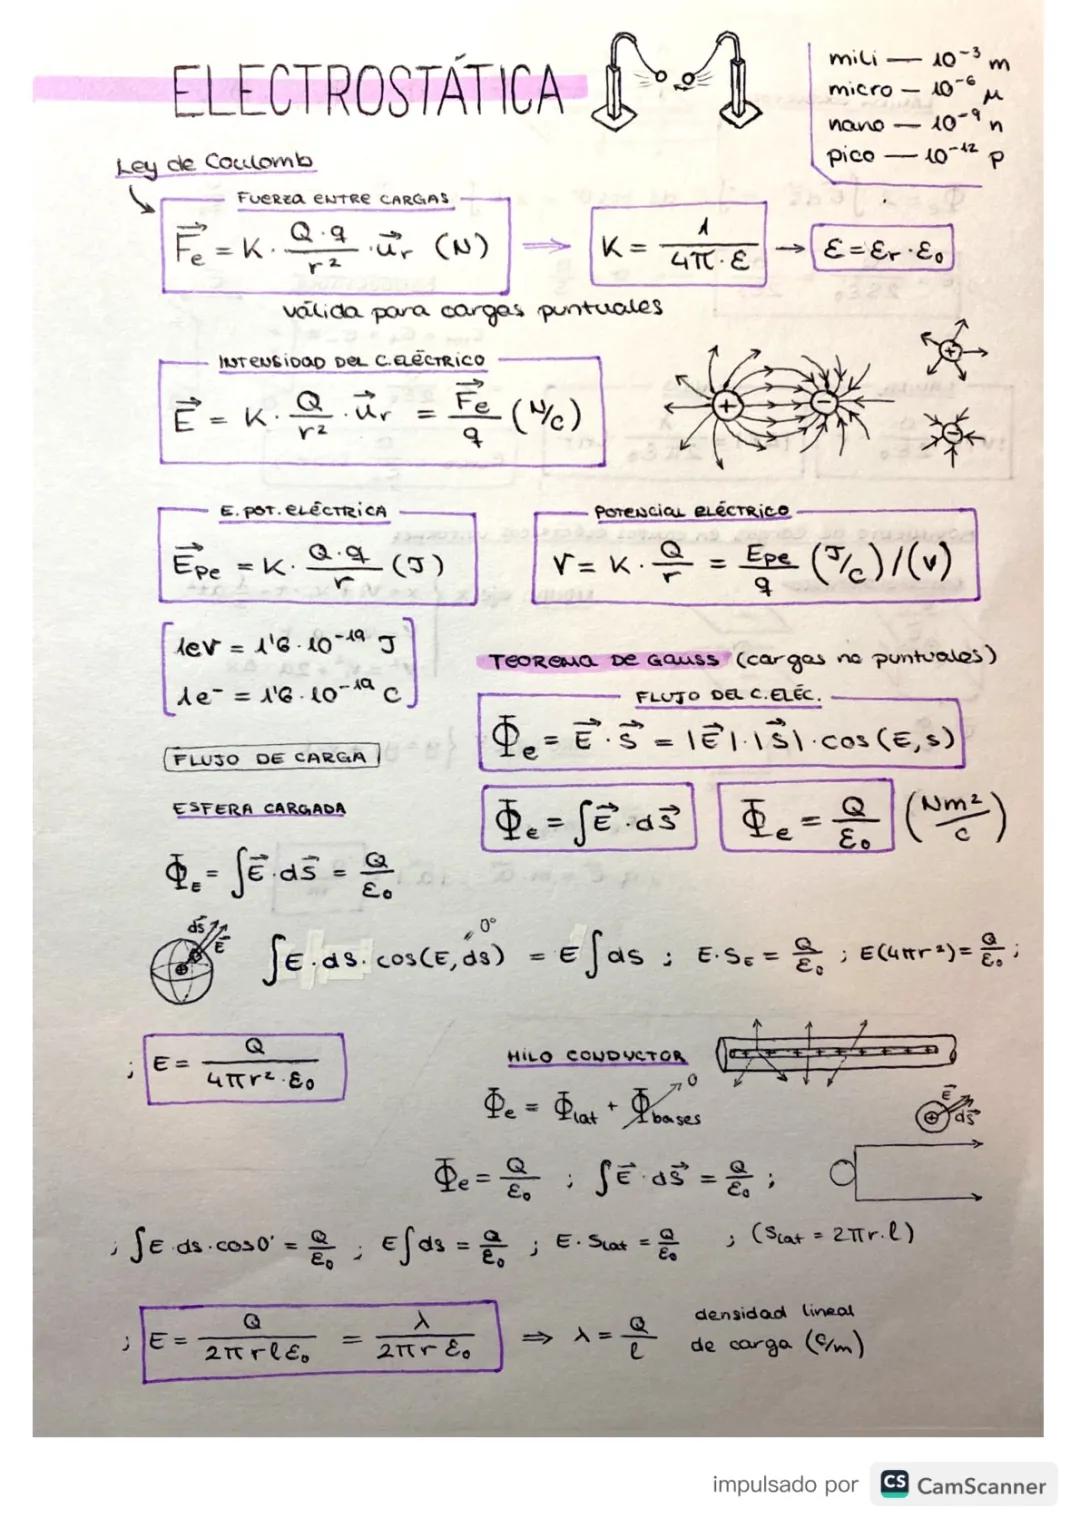 ELECTROSTÁTICA
mili — 10⁻³ m
micro — 10⁻⁶ μ
nano — 10⁻⁹ n
pico — 10⁻¹² p
Ley de Coulomb
FUERZA ENTRE CARGAS
F⃗e = K · Q·q / r² · u⃗r (N) ⇒ K = 1 / 4π·ε → ε = εr · ε₀
válida para cargas puntuales
INTENSIDAD DEL C. ELÉCTRICO
E⃗ = K · Q / r² · u⃗r = F⃗e / q (N/C)
E. POT. ELÉCTRICA
E⃗pe = K · Q·q / r (J)
POTENCIAL ELÉCTRICO
V = K · Q / r = Epe / q (J/C)/(V)
1eV = 1'6 · 10⁻¹⁹ J
1e⁻ = 1'6 · 10⁻¹⁹ C
TEOREMA DE GAUSS (cargas no puntuales)
FLUJO DEL C. ELÉC.
Φe = E⃗ · S⃗ = |E⃗| · |S⃗| · cos(E,s)
FLUJO DE CARGA
Φe = ∫E⃗ · ds⃗ Φe = Q / ε₀ (Nm² / C)
ESFERA CARGADA
ΦE = ∫E⃗ · ds⃗ = Q / ε₀
ds⃗ E⃗
0°
∫E · ds · cos(E,ds) = E∫ds ; E · SE = Q / ε₀ ; E(4πr²) = Q / ε₀ ;
; E = Q / 4πr² · ε₀
HILO CONDUCTOR
Φe = Φlat + Φbases 0
E⃗ ds⃗
Φe = Q / ε₀ ; ∫E⃗ · ds⃗ = Q / ε₀ ;
; ∫E · ds · cos0° = Q / ε₀ ; E∫ds = Q / ε₀ ; E · Slat = Q / ε₀ ; (Slat = 2πr·l)
; E = Q / 2πrlε₀ = λ / 2πrε₀ ⇒ λ = Q / l
densidad lineal
de carga (C/m)
impulsado por CS CamScanner